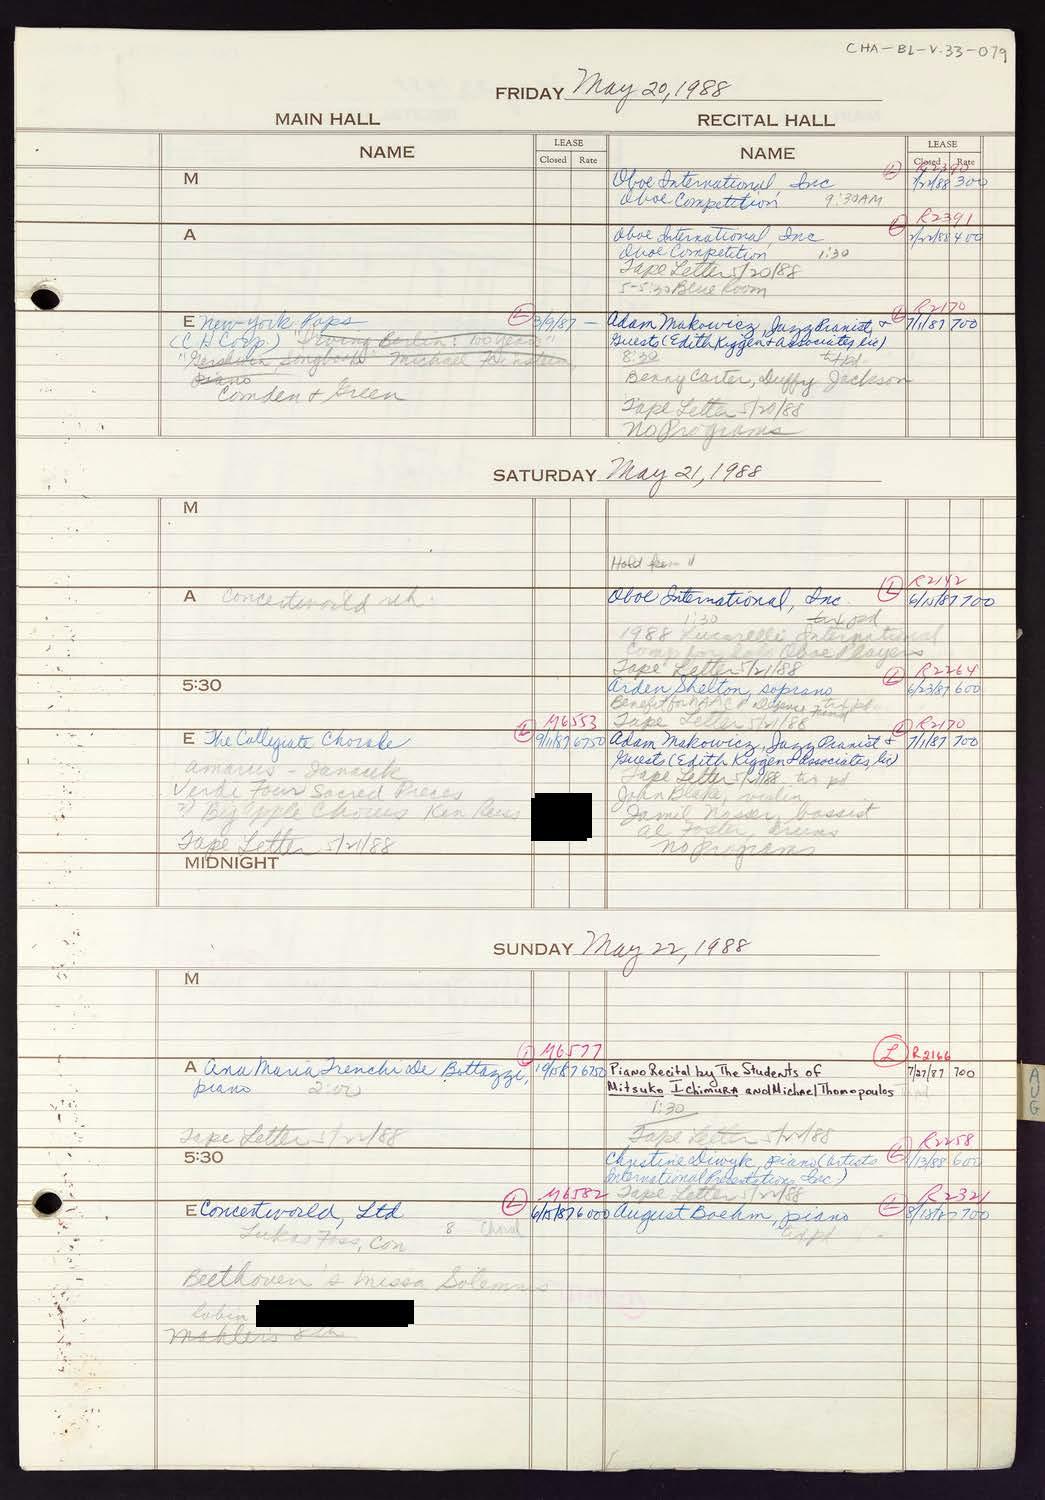 CHA-BL-V.33-079
FRIDAY May 20, 1988
MAIN HALL RECITAL HALL
NAME LEASE Closed Rate NAME LEASE Closed Rate
M Oboe International Inc (L) R2390 300
Oboe Competition 9:30AM
A Oboe International, Inc (L) R2391 2/22/88 400
Oboe Competition 1:30
Tape Letter 5/20/88
5-5:30 Blue Room
E New York Pops (L) 3/9/87 — Adam Makowicz, Jazz Pianist, & (L) R2170 7/1/87 700
(CH Corp.) "Irving Berlin: 100 years" Guests (Edith Kiggen & Associates, Inc)
"Gershwin Songbook" Michael Feinstein, 8:30 txt pd
piano Benny Carter, Duffy Jackson
Comden & Green
Tape Letter 5/20/88
No Programs
SATURDAY May 21, 1988
M
Hold
A Concertworld reh. Oboe International, Inc. (L) R2142 6/15/87 700
1:30 pd
1988 Lucarelli International
Comp for Solo Oboe Players
Tape Letter 5/21/88
5:30 Arden Shelton, soprano (L) R2264 6/23/87 600
Benefit for NAACP Defense Fund
Tape Letter 5/21/88
E The Collegiate Chorale (L) M6553 9/11/87 6750 Adam Makowicz, Jazz Pianist & (L) R2170 7/1/87 700
Guests (Edith Kiggen & Associates, Inc)
Amarus - Janacek Tape Letter 5/21/88 pd
Verdi Four Sacred Pieces John Blake, violin
Big Apple Chorus Ken Jamil Nasser, bassist
Al Foster, drums
Tape Letter 5/21/88 No Programs
MIDNIGHT
SUNDAY May 22, 1988
M
A Ana Maria Trenchi De Bottazzi, (L) M6577 6750 Piano Recital by The Students of (L) R2166 7/27/87 700
piano 2:00 Mitsuko Ichimura and Michael Thomopoulos
1:30
Tape Letter 5/22/88 Tape Letter 5/22/88
5:30 Christine Diwyk, piano (Artists (L) R2258 600
International Presentations, Inc.)
Tape Letter 5/22/88
E Concertworld, Ltd (L) M6582 6/15/87 6000 August Boehm, piano (L) R2321 8/18/87 700
Lukas Foss, Con 8 Choral pd
Beethoven's Missa Solemnis
Mahler's 8th
AUG